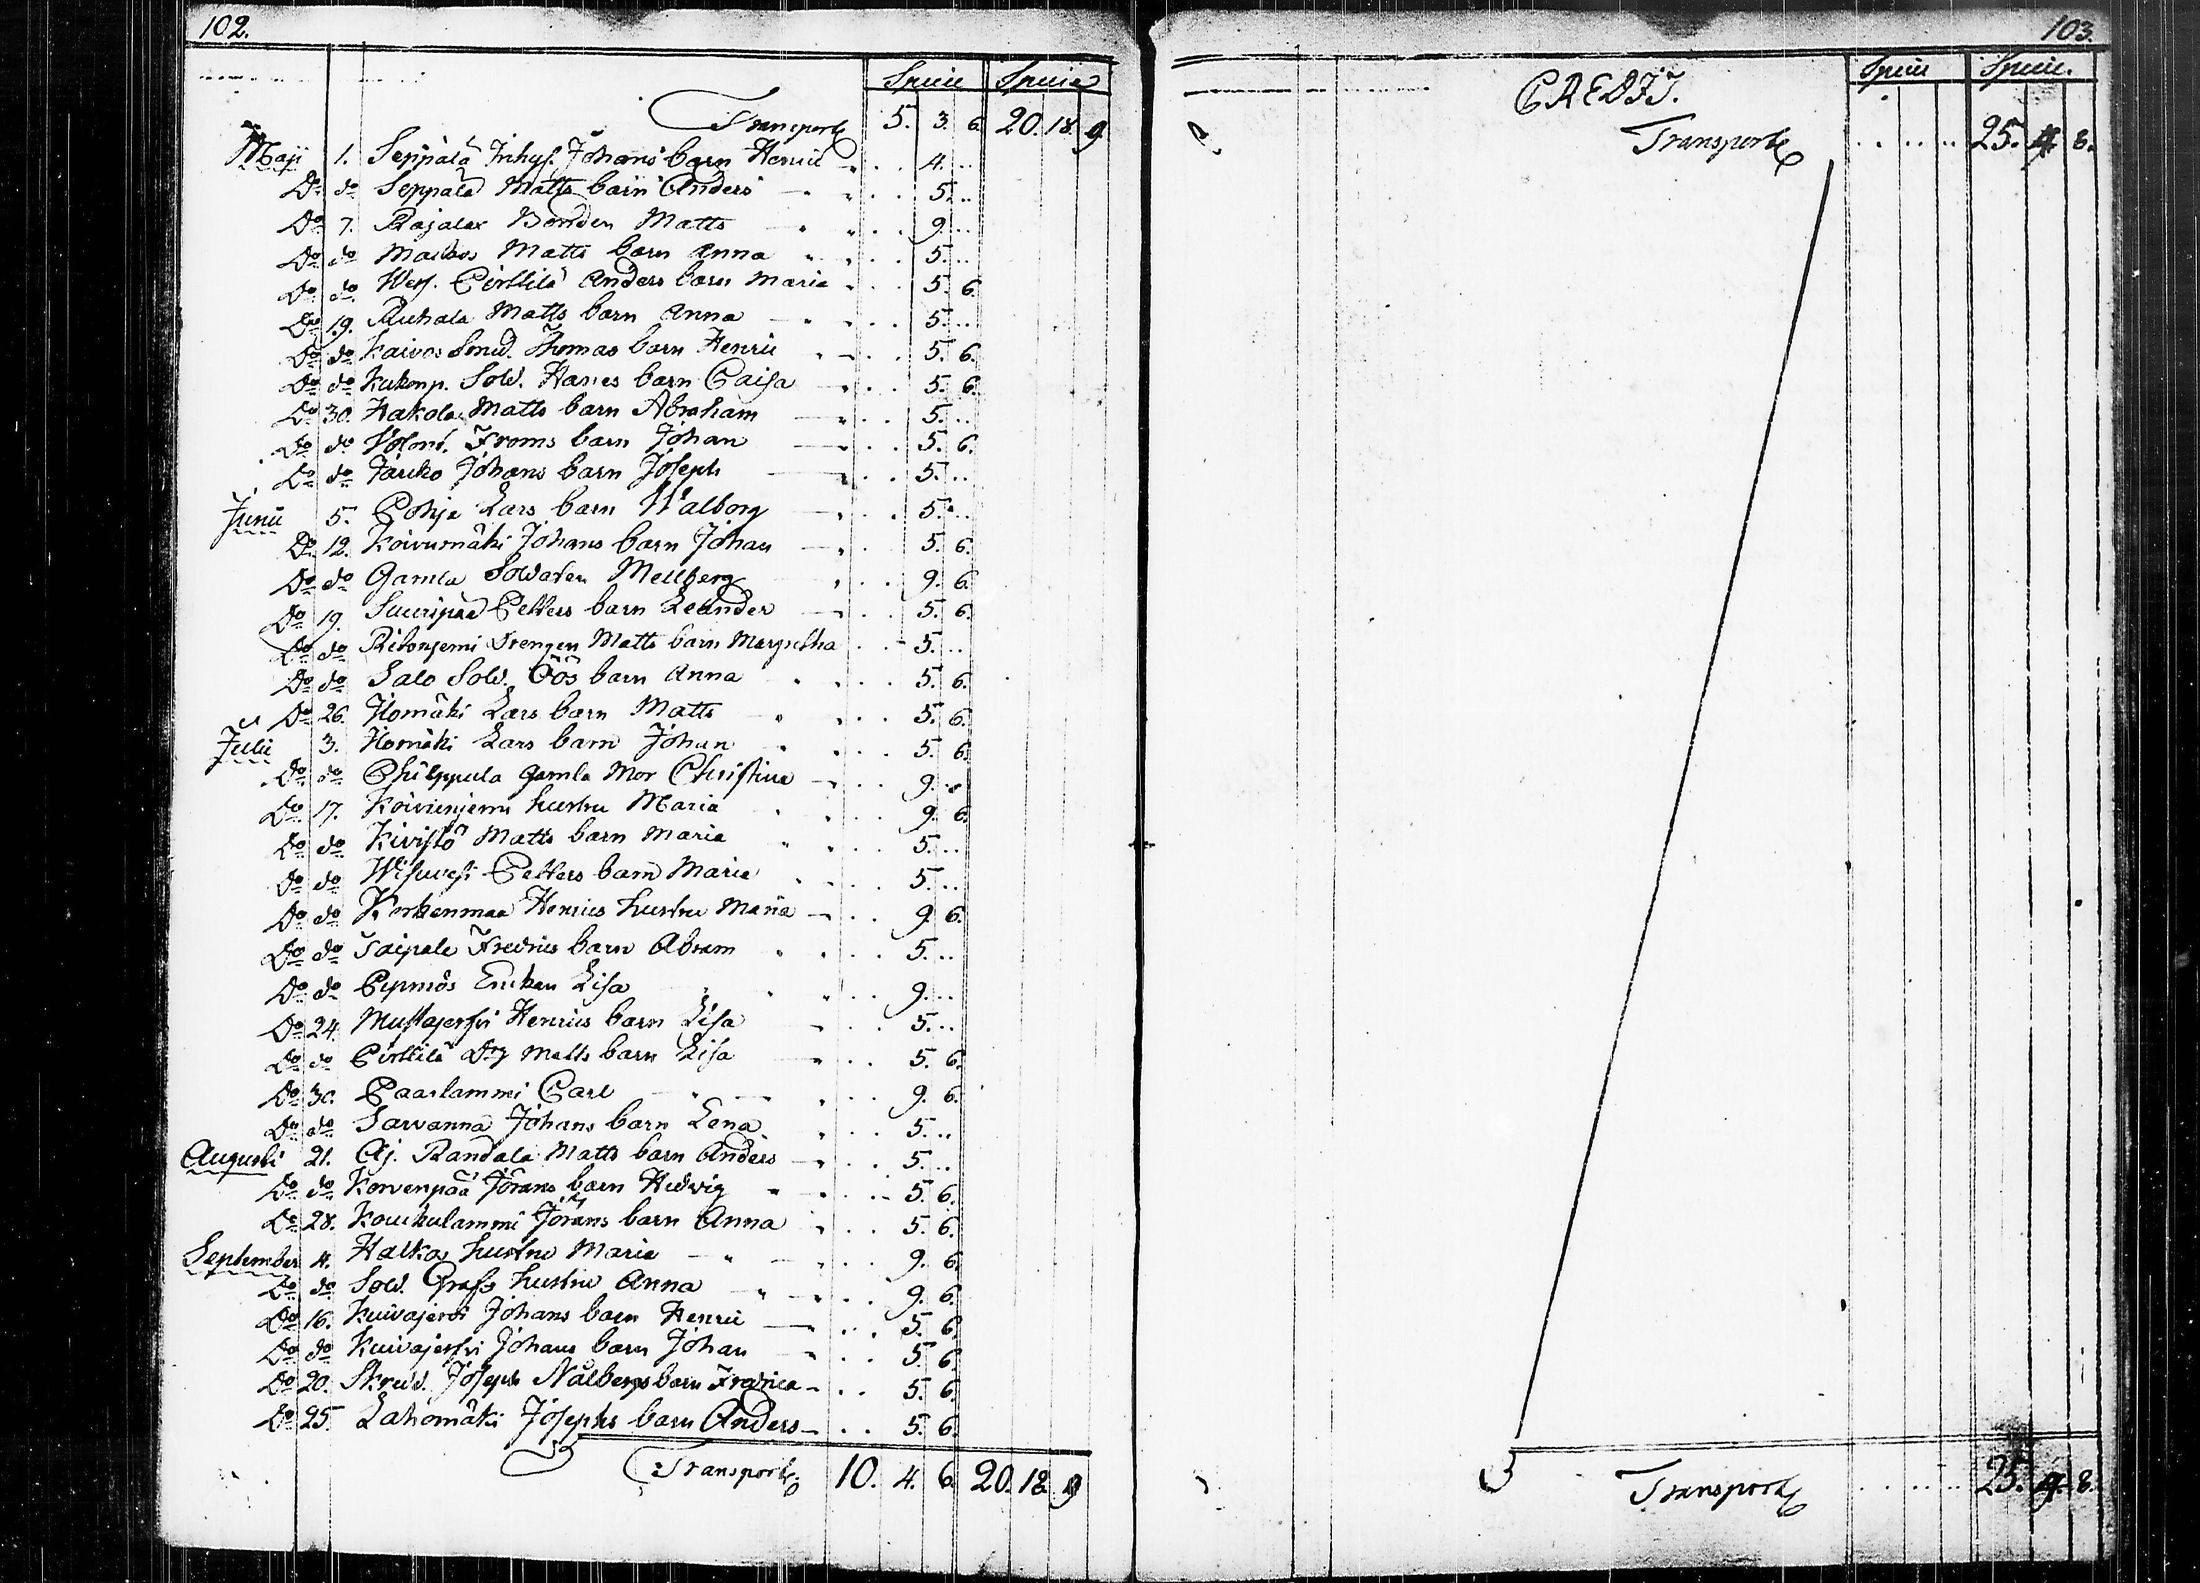 102.
Specie Specie
Transport 5. 3. 6. 20. 18. 9
Maji 1. Seppälä Inhys. Johans barn Henric 4. ..
Do do Seppälä Matts barn Anders 5. ..
Do 7. Rajalax Bonden Matts 9. ..
Do do Matts barn Anna 5. ..
Do do Pirttilä Anders barn Maria 5. 6.
Do 19. Ruhala Matts barn Anna 5. ..
Do do Kaivos Smed. Thomas barn Henric 5. 6.
Do do Kukonp. Sold. Hanes barn Caisa 5. 6.
Do 30. Hakola Matts barn Abraham 5. ..
Do do Froms barn Johan 5. 6.
Do do Johans barn Joseph 5. ..
Junii 5. Pohja Lars barn Walborg 5. ..
Do 12. Koivumäki Johans barn Johan 5. 6.
Do do Gamla Soldaten Mellberg 9. 6.
Do 19. Suuripää Petters barn Leander 5. 6.
Do do Drengen Matts barn Margretha 5. ..
Do do Salo Sold. Öös barn Anna 5. 6.
Do 26. Homäki Lars barn Matts 5. 6.
Julii 3. Homäki Lars barn Johan 5. 6.
Do do Philppula gamla Mor Christina 9. ..
Do 17. Koivunjemi hustru Maria 9. 6.
Do do Kivistö Matts barn Maria 5. ..
Do do Wisuvesi Petters barn Maria 5. ..
Do do Korkenmaa Henrics hustru Maria 9. 6.
Do do Taipale Fredrics barn Abram 5. ..
Do do Enckan Lisa 9. ..
Do 24. Mustajerfvi Henrics barn Lisa 5. ..
Do do Pirttilä Drg Matts barn Lisa 5. 6.
Do 30. Paaslammi Carl 9. 6.
Do do Sarvanna Johans barn Lena 5. ..
Augusti 21. Aj. Randala Matts barn Anders 5. ..
Do do Korvenpää Jörans barn Hedvig 5. 6.
Do 28. Koukulammi Jörans barn Anna 5. 6.
September 4. Halkos hustru Maria 9. 6.
Do do Sold. Grafs hustru Anna 9. 6.
Do 16. Kuivajerfvi Johans barn Henric 5. 6.
Do do Kuivajerfvi Johans barn Johan 5. 6.
Do 20. Skredd. Joseph Nålbergs barn Fredrica 5. 6.
Do 25. Lahomäki Josephs barn Anders 5. 6.
Transport. 10. 4. 6. 20. 18. 9
103.
CREDIT. Specie Specie.
Transport 25. 9. 8.
Transport 25. 9. 8.